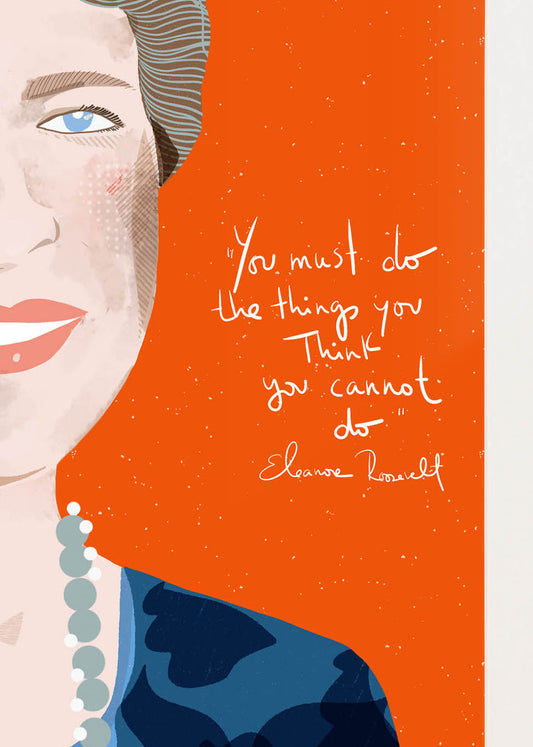 "You must do
the things you
Think
you cannot
do"
Eleanore Roosevelt